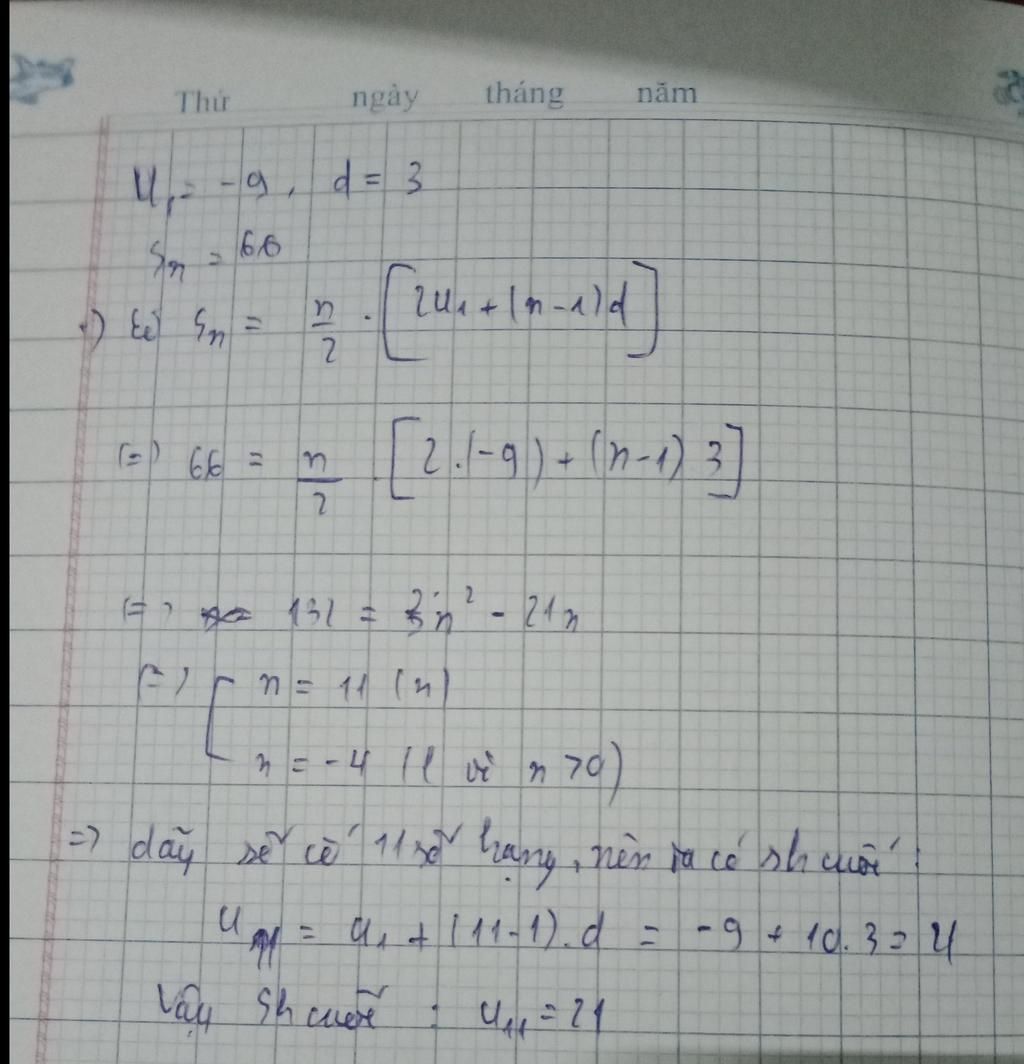 Thứ ngày tháng năm
U₁ = -9, d = 3
Sₙ = 66
Sₙ = n/2 . [2u₁ + (n-1)d]
(=) 66 = n/2 . [2.(-9) + (n-1) 3]
(=) 132 = 3n² - 21n
(=) [ n = 11 (n)
n = -4 (l vì n>0)
=) dãy số có 11 số hạng, nên ta có sh cuối :
U₁₁ = u₁ + (11-1).d = -9 + 10.3 = 21
Vậy sh cuối : u₁₁ = 21